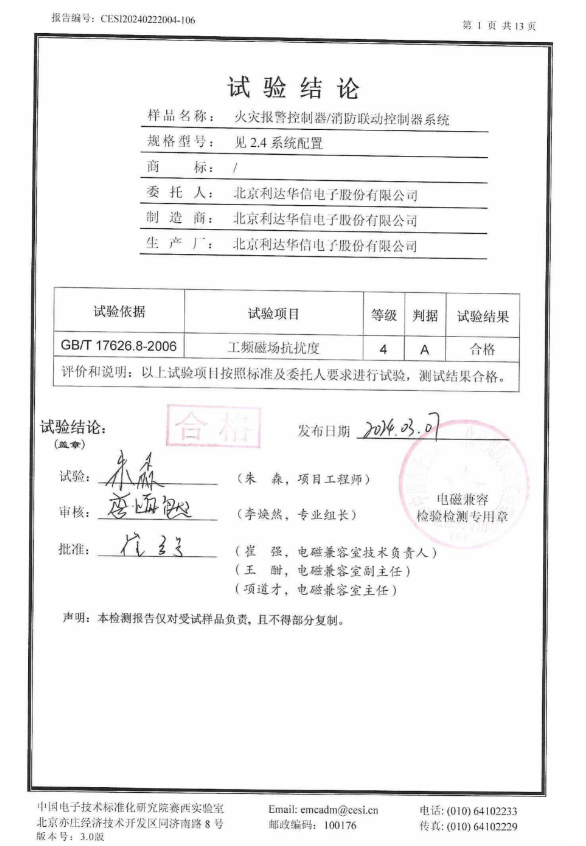 报告编号：CESI20240222004-106
第 1 页 共13页
试验结论
样品名称：火灾报警控制器/消防联动控制器系统
规格型号：见 2.4 系统配置
商标：/
委托人：北京利达华信电子股份有限公司
制造商：北京利达华信电子股份有限公司
生产厂：北京利达华信电子股份有限公司
试验依据 试验项目 等级 判据 试验结果
GB/T 17626.8-2006 工频磁场抗扰度 4 A 合格
评价和说明：以上试验项目按照标准及委托人要求进行试验，测试结果合格。
试验结论：合格 发布日期 2024.03.07
(盖章)
试验：朱森（朱 森，项目工程师）
审核：（李焕然，专业组长）
批准：崔强（崔 强，电磁兼容室技术负责人）
（王 酣，电磁兼容室副主任）
（项道才，电磁兼容室主任）
电磁兼容
检验检测专用章
声明：本检测报告仅对受试样品负责，且不得部分复制。
中国电子技术标准化研究院赛西实验室 Email: emcadm@cesi.cn 电话: (010) 64102233
北京亦庄经济技术开发区同济南路 8 号 邮政编码：100176 传真: (010) 64102229
版本号：3.0版